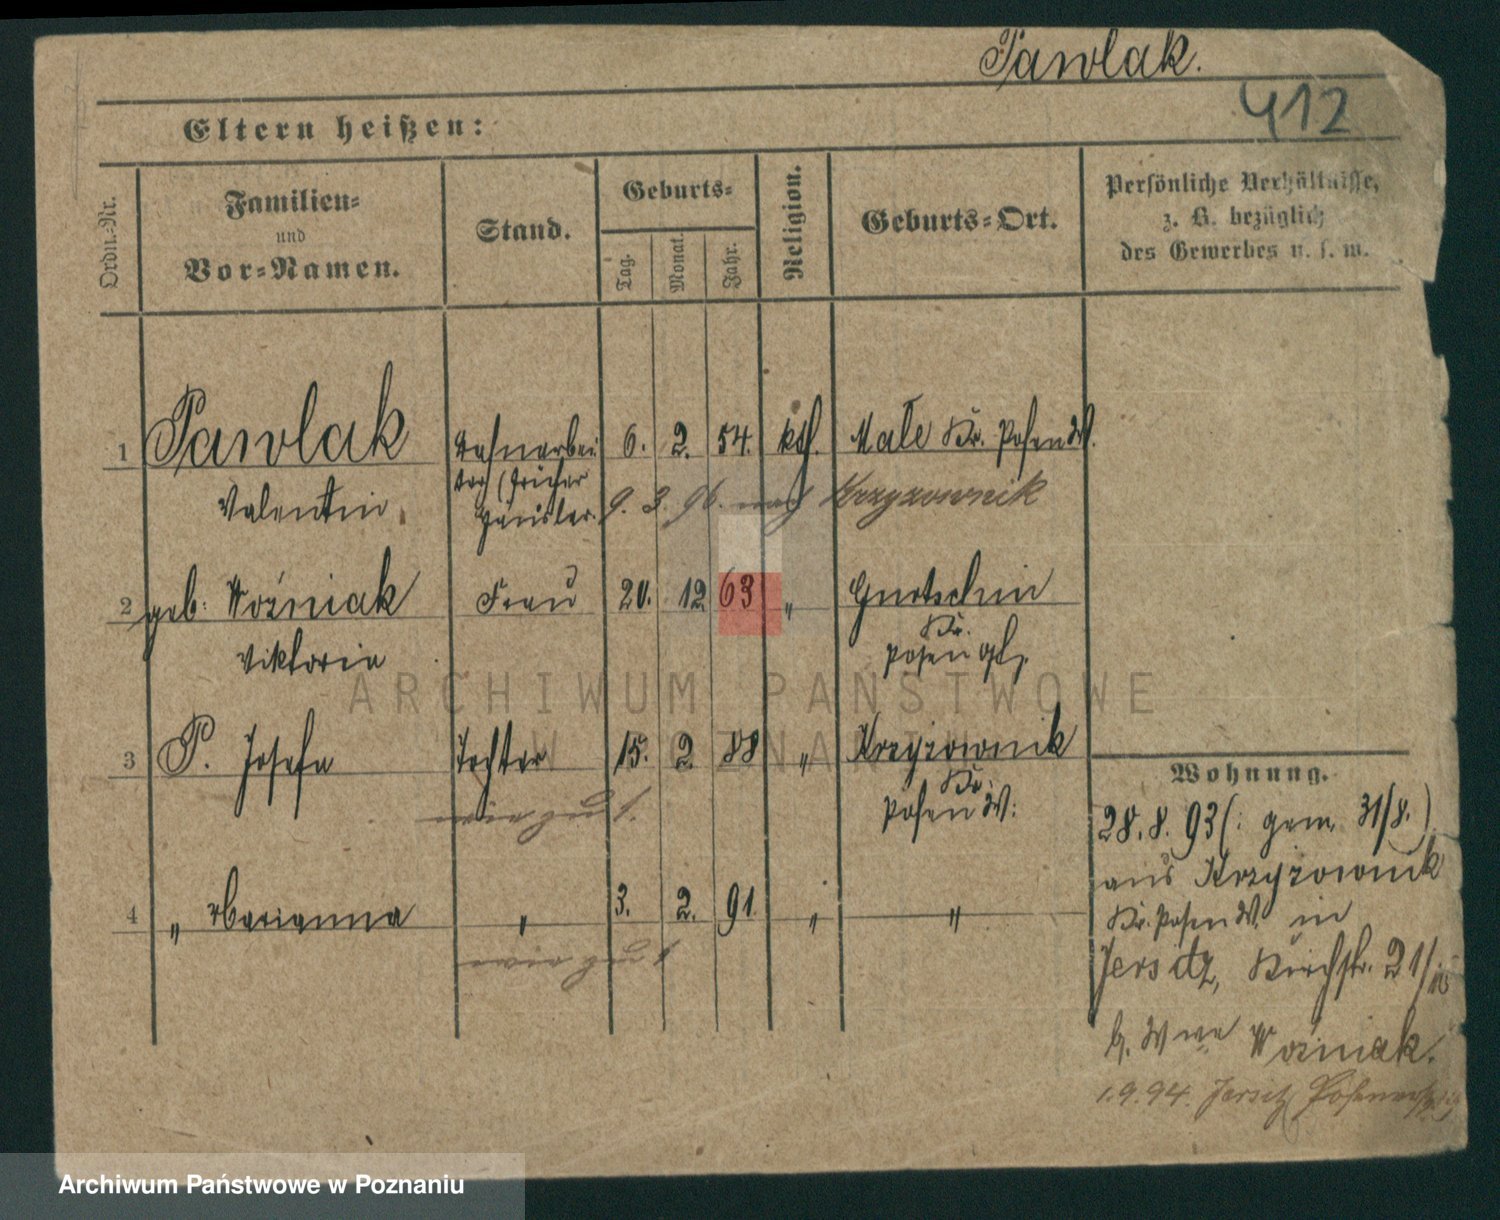 Pawlak.
412
Eltern heißen:
Ordn.-Nr.
Familien-
und
Vor-Namen.
Stand.
Geburts-
Tag.
Monat.
Jahr.
Religion.
Geburts-Ort.
Persönliche Verhältnisse,
z. B. bezüglich
des Gewerbes u. s. w.
1 Pawlak 6. 2. 54. kth. Małe Kr. Posen W.
Valentin
(früher
Häusler.
9. 3. 96. nach Krzyzownik
2 geb: Woźniak Frau 20. 12 63 " Gurtschin
Viktoria Kr.
Posen
ARCHIWUM PAŃSTWOWE
W POZNANIU
3 P. Josefa Tochter 15. 2. 88 " Krzyzownik
Kr.
Posen W.
wie zu 1.
4 " Marianna " 3. 2. 91 " "
wie zu 1
Wohnung.
28. 8. 93 (: gem. 31/8.)
aus Krzyzownik
Kr. Posen W. in
Jersitz, Kirchstr. 21/
b. Wwe Woźniak.
1. 9. 94. Jersitz
Archiwum Państwowe w Poznaniu